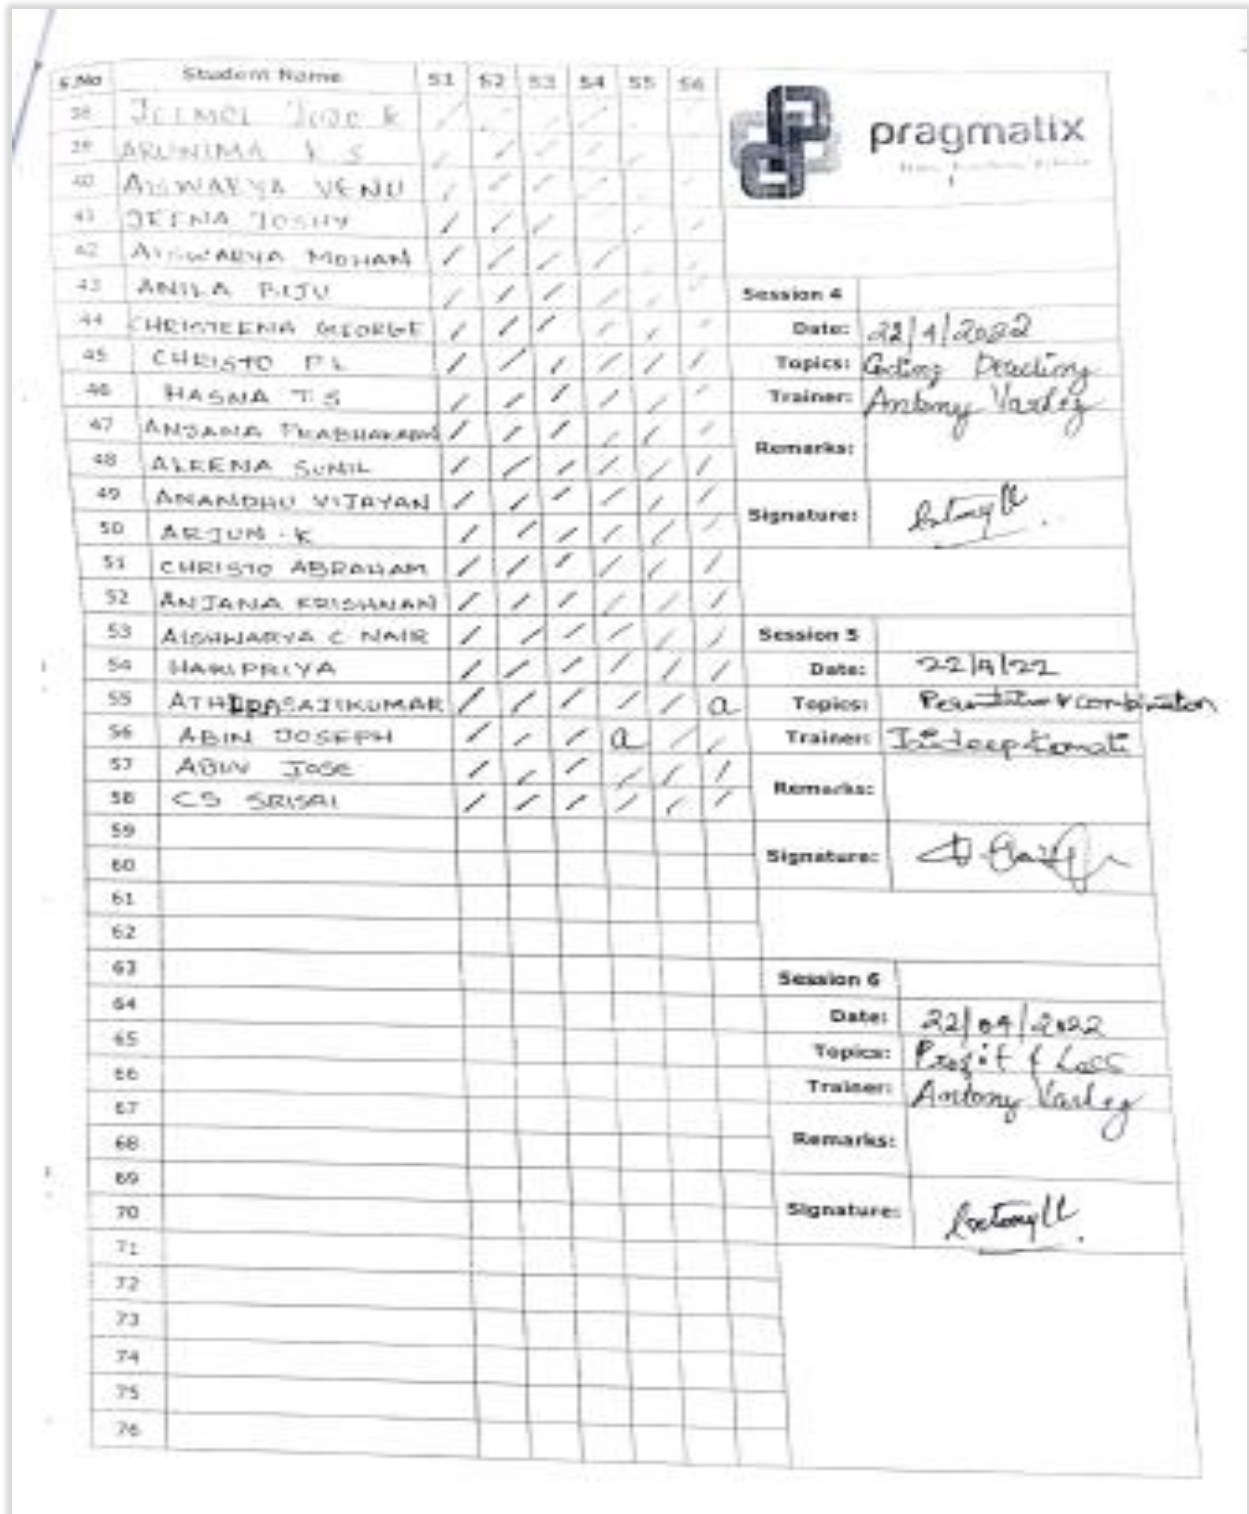 S.No Student Name S1 S2 S3 S4 S5 S6
38 JELMOL JOJO K
39 ARUNIMA K S
40 AISWARYA VENU
41 JEENA JOSHY
42 AISWARYA MOHAN
43 ANILA BIJU
44 CHRISTEENA GEORGE
45 CHRISTO P L
46 HASNA T S
47 ANJANA PRABHAKARAN
48 ALEENA SUNIL
49 ANANDHU VIJAYAN
50 ARJUN K
51 CHRISTO ABRAHAM
52 ANJANA KRISHNAN
53 AISHWARYA C NAIR
54 HARIPRIYA
55 SAJIKUMAR a
56 ABIN JOSEPH a
57 ABIN JOSE
58 CS SRISAI
59
60
61
62
63
64
65
66
67
68
69
70
71
72
73
74
75
76
pragmatix
Session 4
Date: 22/4/2022
Topics:
Trainer: Antony Varley
Remarks:
Signature:
Session 5
Date: 22/4/22
Topics: combination
Trainer:
Remarks:
Signature:
Session 6
Date: 22/04/2022
Topics: Profit & Loss
Trainer: Antony Varley
Remarks:
Signature: